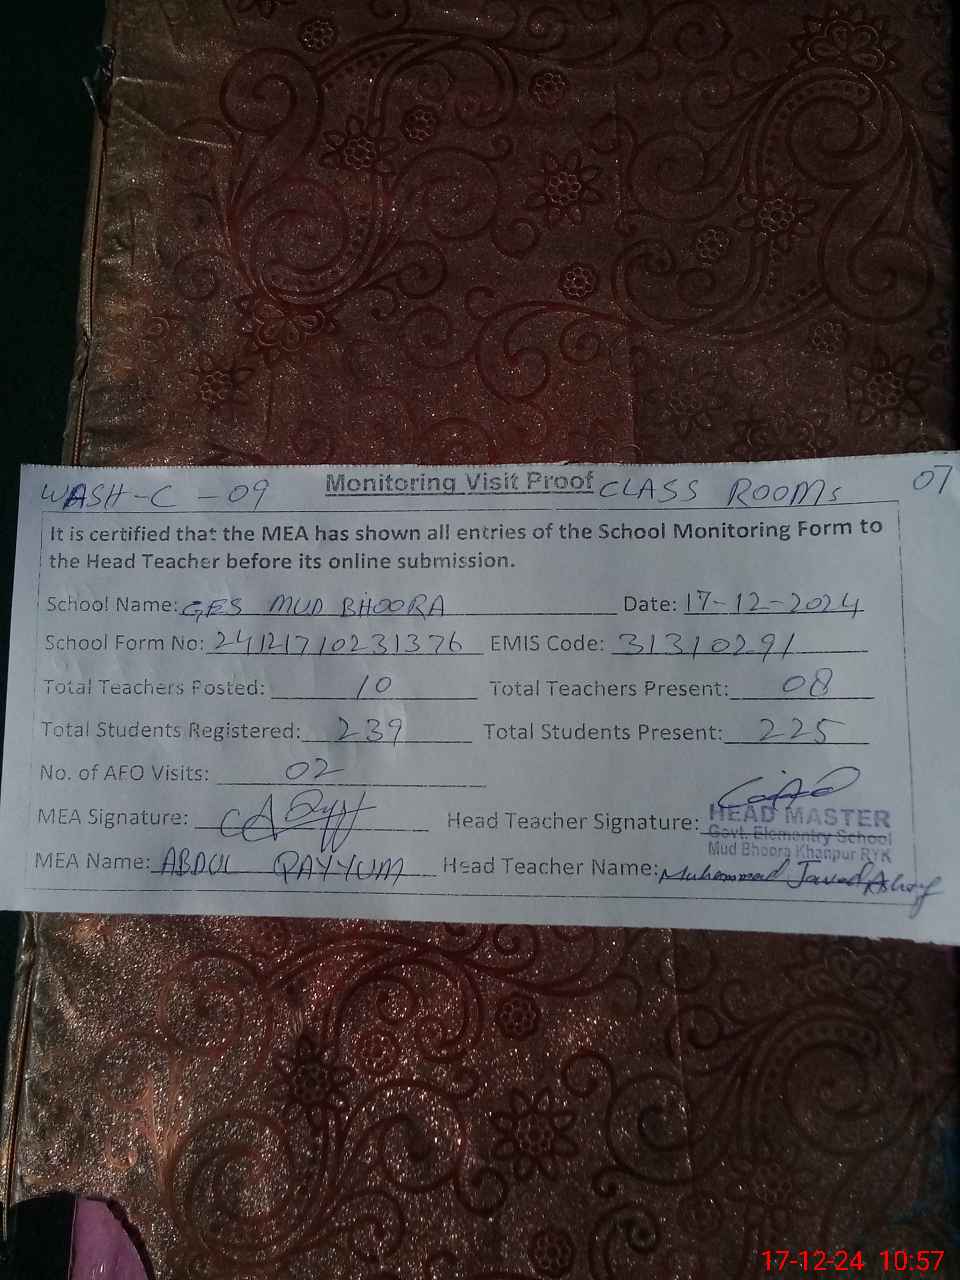 WASH-C - 09 Monitoring Visit Proof CLASS ROOMs 07
It is certified that the MEA has shown all entries of the School Monitoring Form to
the Head Teacher before its online submission.
School Name: GES MUD BHOORA Date: 17-12-2024
School Form No: 24121710231376 EMIS Code: 31310291
Total Teachers Posted: 10 Total Teachers Present: 08
Total Students Registered: 239 Total Students Present: 225
No. of AEO Visits: 02
MEA Signature: Head Teacher Signature:
HEAD MASTER
Govt. Elementry School
Mud Bhoora Khanpur RYK
MEA Name: ABDUL QAYYUM Head Teacher Name: Muhammad Javed Ashraf
17-12-24 10:57